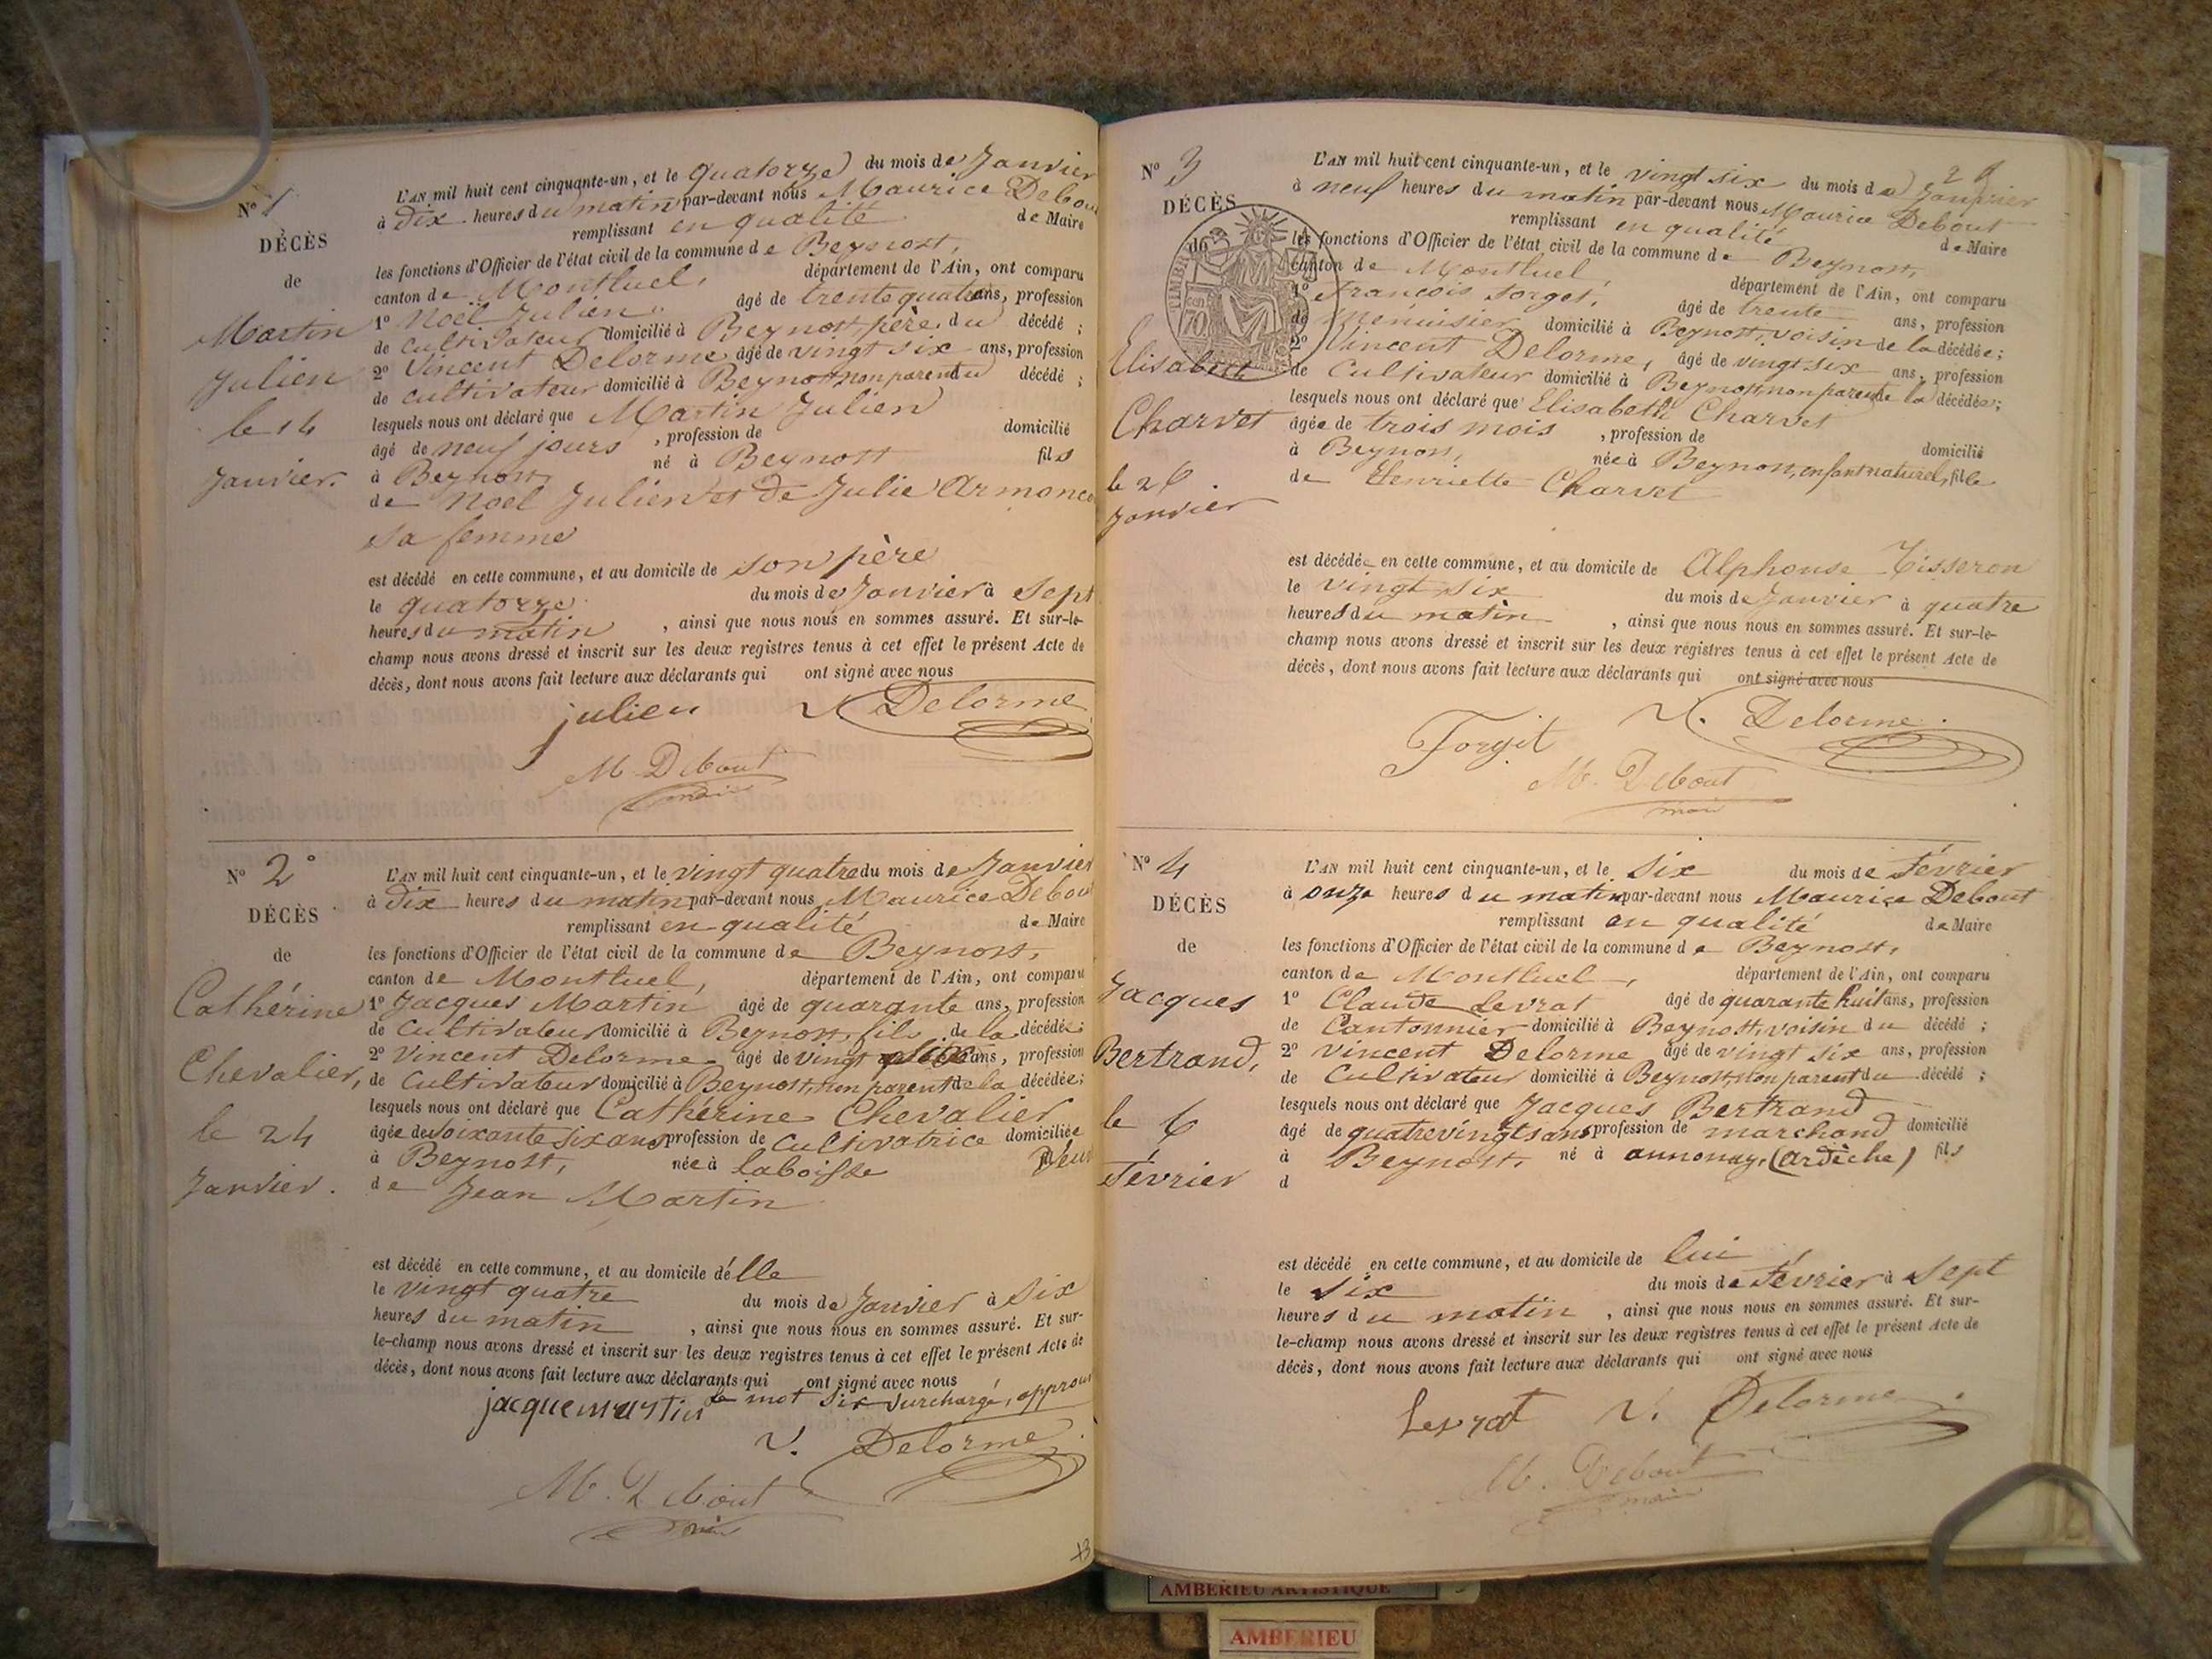 N° 1
DÉCÈS
de
Martin
Julien
le 14
Janvier.
L'AN mil huit cent cinquante-un, et le quatorze du mois de Janvier
à dix heures du matin par-devant nous Maurice Debou
remplissant en qualité de Maire
les fonctions d'Officier de l'état civil de la commune de Beynost,
canton de Montluel, département de l'Ain, ont comparu
1° Noël Julien âgé de trente quatre ans, profession
de cultivateur domicilié à Beynost, père du décédé ;
2° Vincent Delorme âgé de vingt six ans, profession
de cultivateur domicilié à Beynost non parent du décédé ;
lesquels nous ont déclaré que Martin Julien
âgé de neuf jours , profession de domicilié
à Beynost né à Beynost fils
de Noël Julien et de Julie Armonce
sa femme
est décédé en cette commune, et au domicile de son père
le quatorze du mois de Janvier à sept
heures du matin , ainsi que nous nous en sommes assuré. Et sur-le-
champ nous avons dressé et inscrit sur les deux registres tenus à cet effet le présent Acte de
décès, dont nous avons fait lecture aux déclarants qui ont signé avec nous
julien V Delorme
M Debout
maire
N° 2°
DÉCÈS
de
Cathérine
Chevalier,
le 24
Janvier.
L'AN mil huit cent cinquante-un, et le vingt quatre du mois de Janvier
à dix heures du matin par-devant nous Maurice Debou
remplissant en qualité de Maire
les fonctions d'Officier de l'état civil de la commune de Beynost,
canton de Montluel, département de l'Ain, ont comparu
1° Jacques Martin âgé de quarante ans, profession
de cultivateur domicilié à Beynost, fils de la décédée ;
2° Vincent Delorme âgé de vingt six ans, profession
de cultivateur domicilié à Beynost, non parent de la décédée ;
lesquels nous ont déclaré que Cathérine Chevalier
âgée de soixante six ans profession de cultivatrice domiciliée
à Beynost, née à laboisse Veuv
de Jean Martin
est décédé en cette commune, et au domicile d'élle
le vingt quatre du mois de Janvier à six
heures du matin , ainsi que nous nous en sommes assuré. Et sur-
le-champ nous avons dressé et inscrit sur les deux registres tenus à cet effet le présent Acte de
décès, dont nous avons fait lecture aux déclarants qui ont signé avec nous
le mot six surchargé, approu
jacquemartin
V. Delorme
M. Debout
maire
13
N° 3
DÉCÈS
de
Elisabeth
Charvet
le 26
Janvier
TIMBRE
70
L'AN mil huit cent cinquante-un, et le vingt six du mois de Janvier
à neuf heures du matin par-devant nous Maurice Debout
remplissant en qualité de Maire
les fonctions d'Officier de l'état civil de la commune de Beynost,
canton de Montluel, département de l'Ain, ont comparu
1° François Forget, âgé de trente ans, profession
de menuisier domicilié à Beynost, voisin de la décédée ;
2° Vincent Delorme, âgé de vingt six ans, profession
de Cultivateur domicilié à Beynost, non parent de la décédée ;
lesquels nous ont déclaré que Elisabeth Charvet
âgée de trois mois , profession de domicilié
à Beynost, née à Beynost, enfant naturel, fille
de Henriette Charvet
est décédée en cette commune, et au domicile de Alphonse Tisseron
le vingt six du mois de Janvier à quatre
heures du matin , ainsi que nous nous en sommes assuré. Et sur-le-
champ nous avons dressé et inscrit sur les deux registres tenus à cet effet le présent Acte de
décès, dont nous avons fait lecture aux déclarants qui ont signé avec nous
Forgit V. Delorme
M. Debout
maire
N° 4
DÉCÈS
de
Jacques
Bertrand,
le 6
Février
L'AN mil huit cent cinquante-un, et le six du mois de Février
à onze heures du matin par-devant nous Maurice Debout
remplissant en qualité de Maire
les fonctions d'Officier de l'état civil de la commune de Beynost,
canton de Montluel, département de l'Ain, ont comparu
1° Claude Levrat âgé de quarante huit ans, profession
de Cantonnier domicilié à Beynost, voisin du décédé ;
2° Vincent Delorme âgé de vingt six ans, profession
de Cultivateur domicilié à Beynost, non parent du décédé ;
lesquels nous ont déclaré que Jacques Bertrand
âgé de quatrevingts ans profession de marchand domicilié
à Beynost, né à annonay, (ardèche) fils
d
est décédé en cette commune, et au domicile de lui
le six du mois de Février à sept
heures du matin , ainsi que nous nous en sommes assuré. Et sur-
le-champ nous avons dressé et inscrit sur les deux registres tenus à cet effet le présent Acte de
décès, dont nous avons fait lecture aux déclarants qui ont signé avec nous
Levrat V. Delorme
M. Debout
maire
AMBERIEU ARTISTIQUE
AMBERIEU